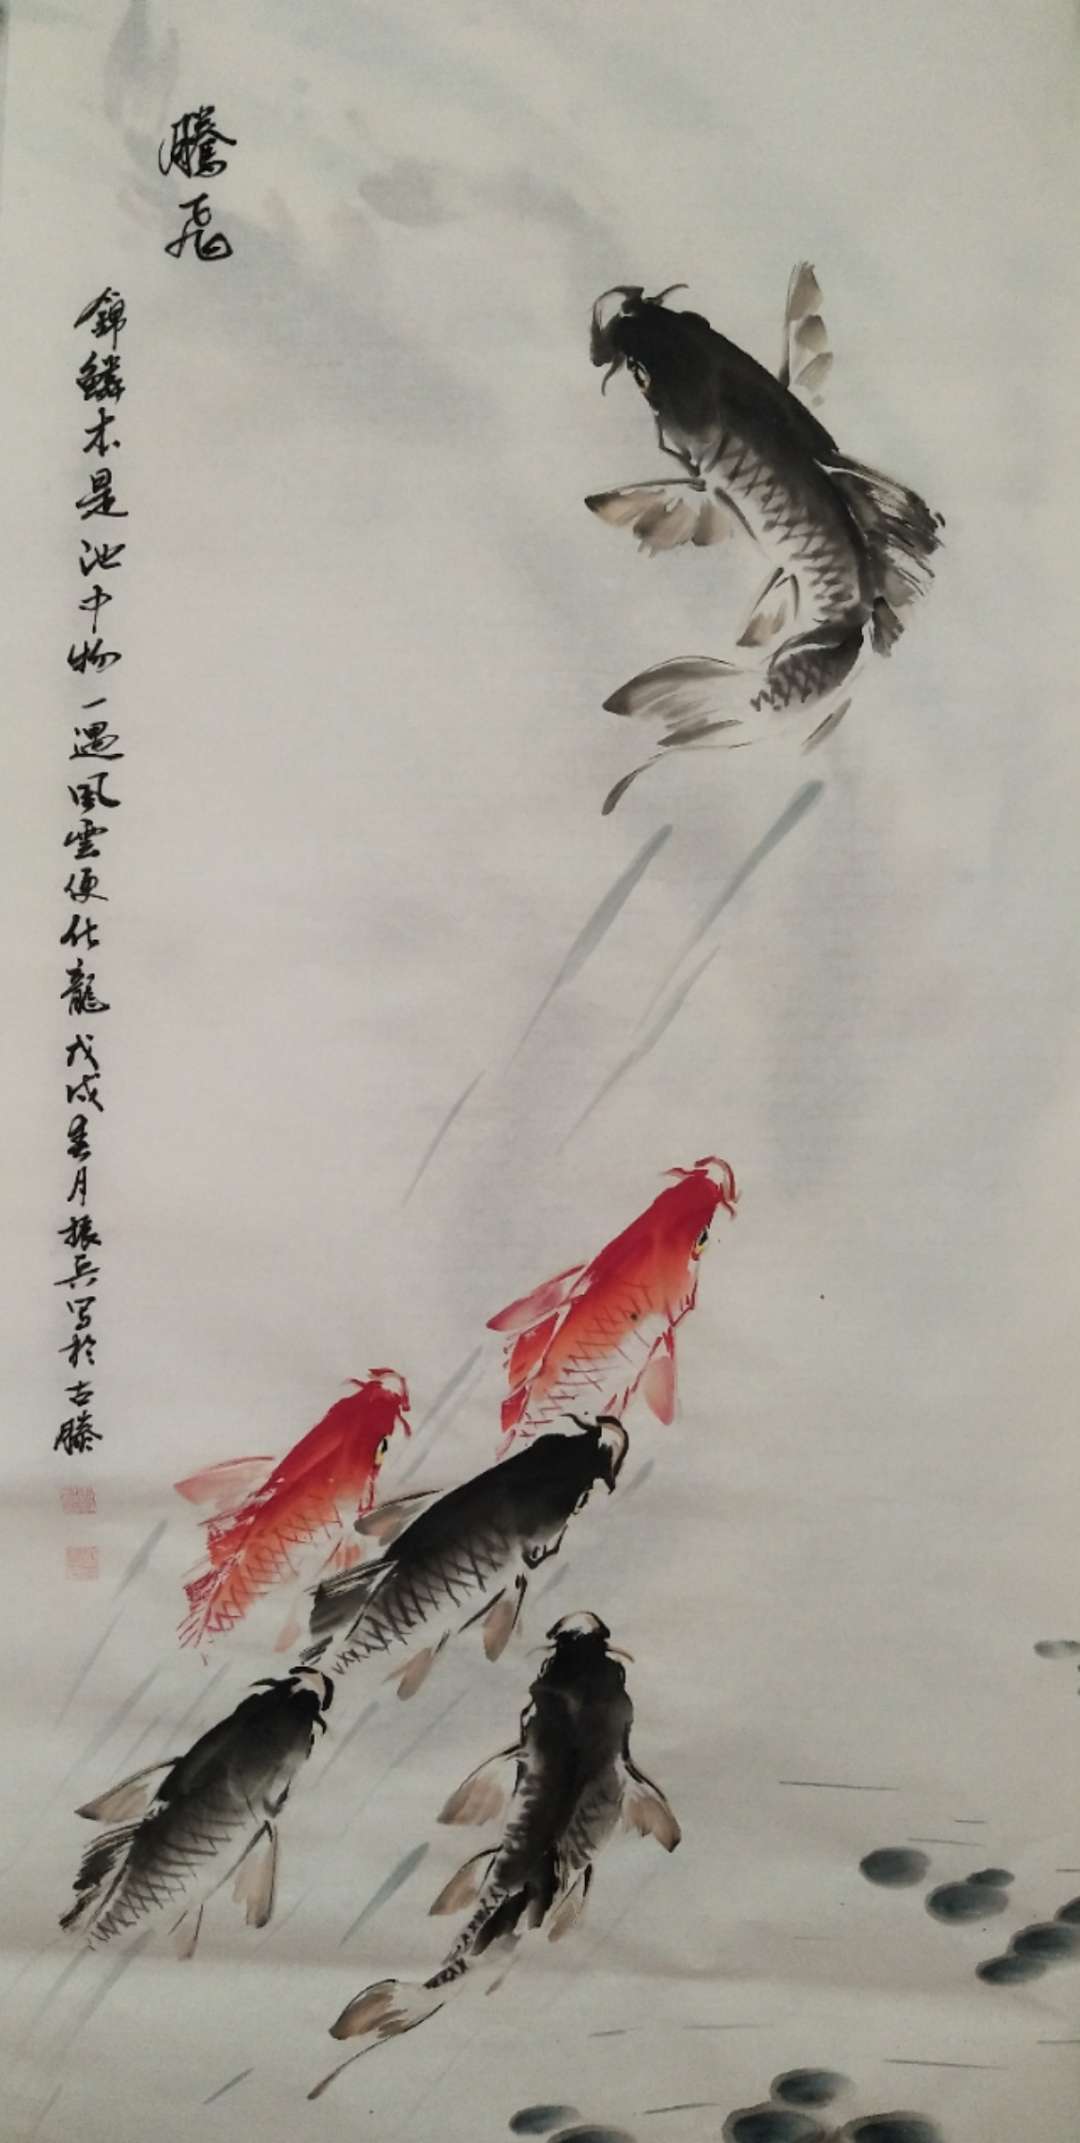 騰飛
錦鱗本是池中物一遇風雲便化龍戊戌春月振兵写於古滕